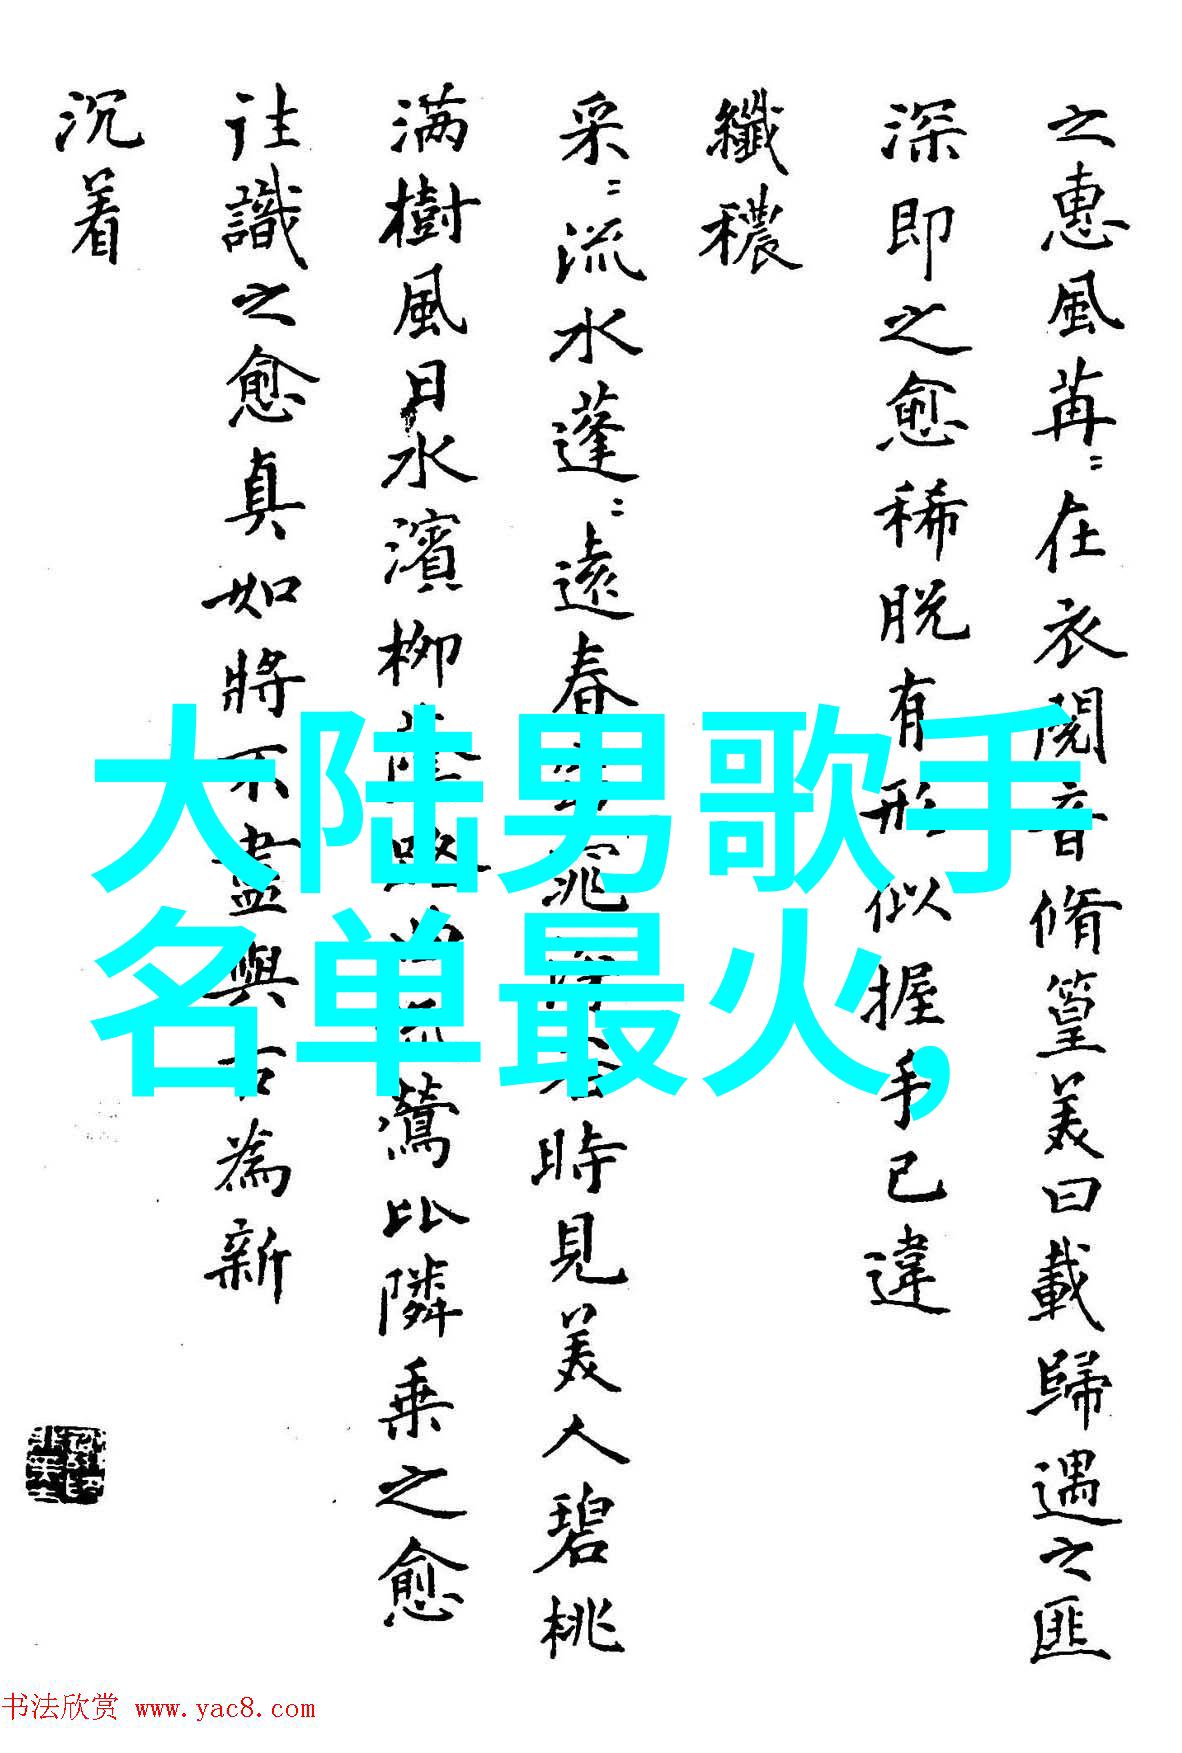 之惠風苒〻在衣閱音脩篁美曰載歸遇之匪
深即之愈稀脫有形似握手已違
纖穠
采〻流水蓬〻遠春時見美人碧桃
满樹風日水濱柳路鶯比隣乗之愈
往識之愈真如將不盡與古為新
沉着
大陆男歌手
名单最火,
书法欣赏 www.yac8.com